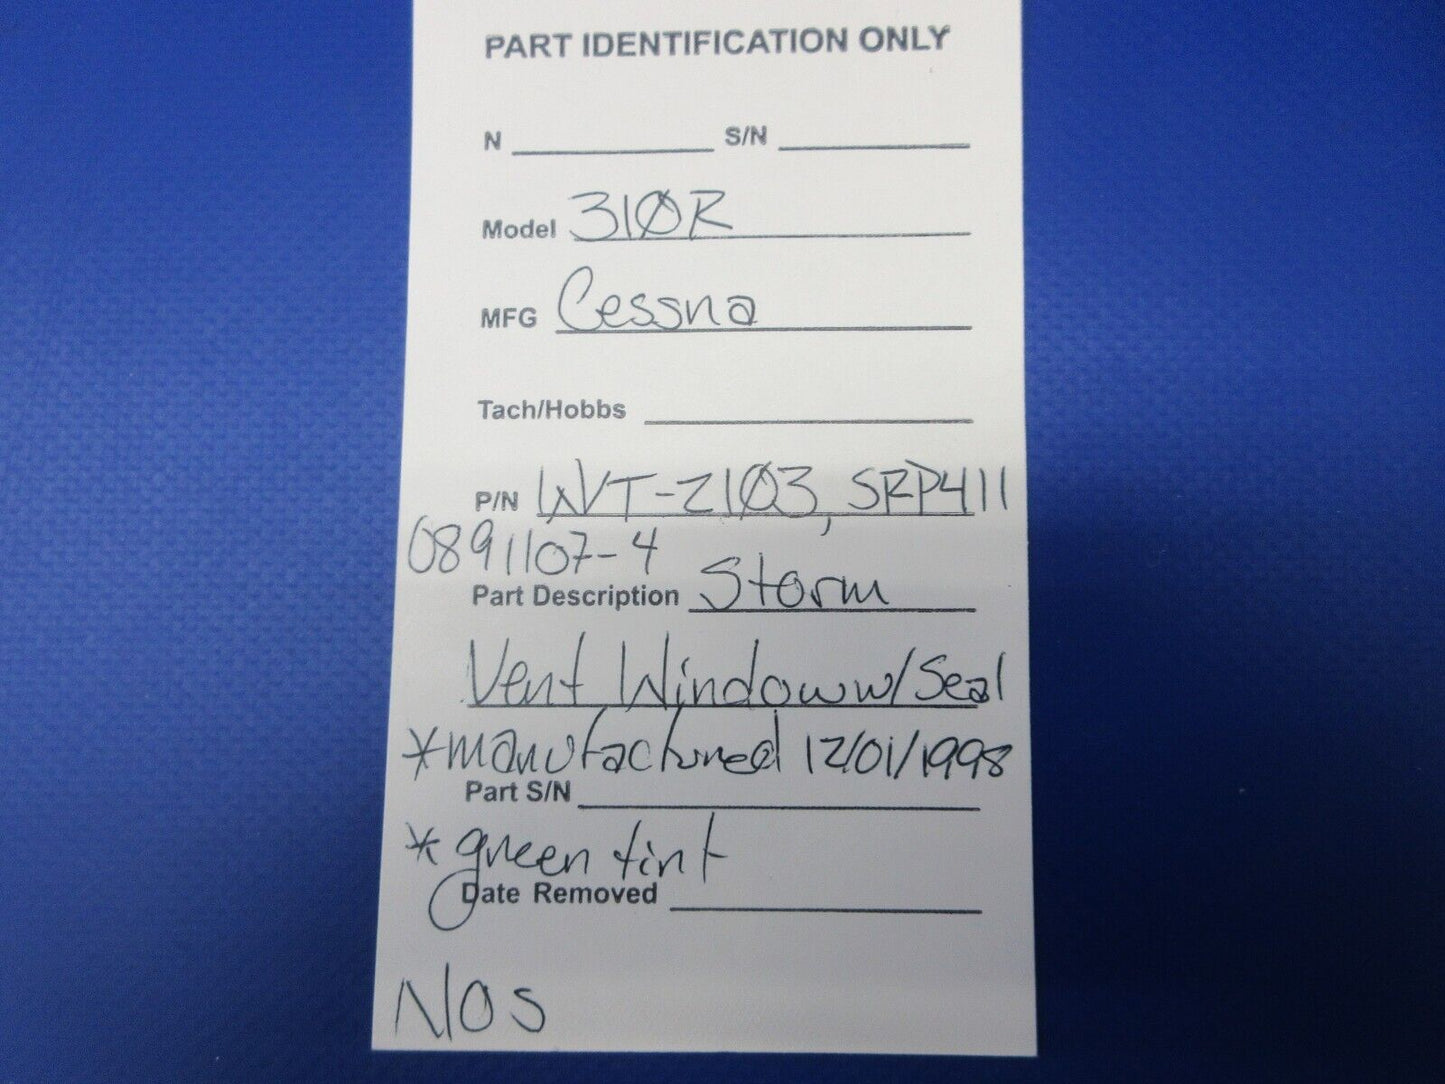 PART IDENTIFICATION ONLY
N S/N
Model 310R
MFG Cessna
Tach/Hobbs
P/N WVT-2103, SRP411
0891107-4
Part Description Storm
Vent Window w/Seal
*manufactured 12/01/1998
Part S/N
* green tint
Date Removed
NOS